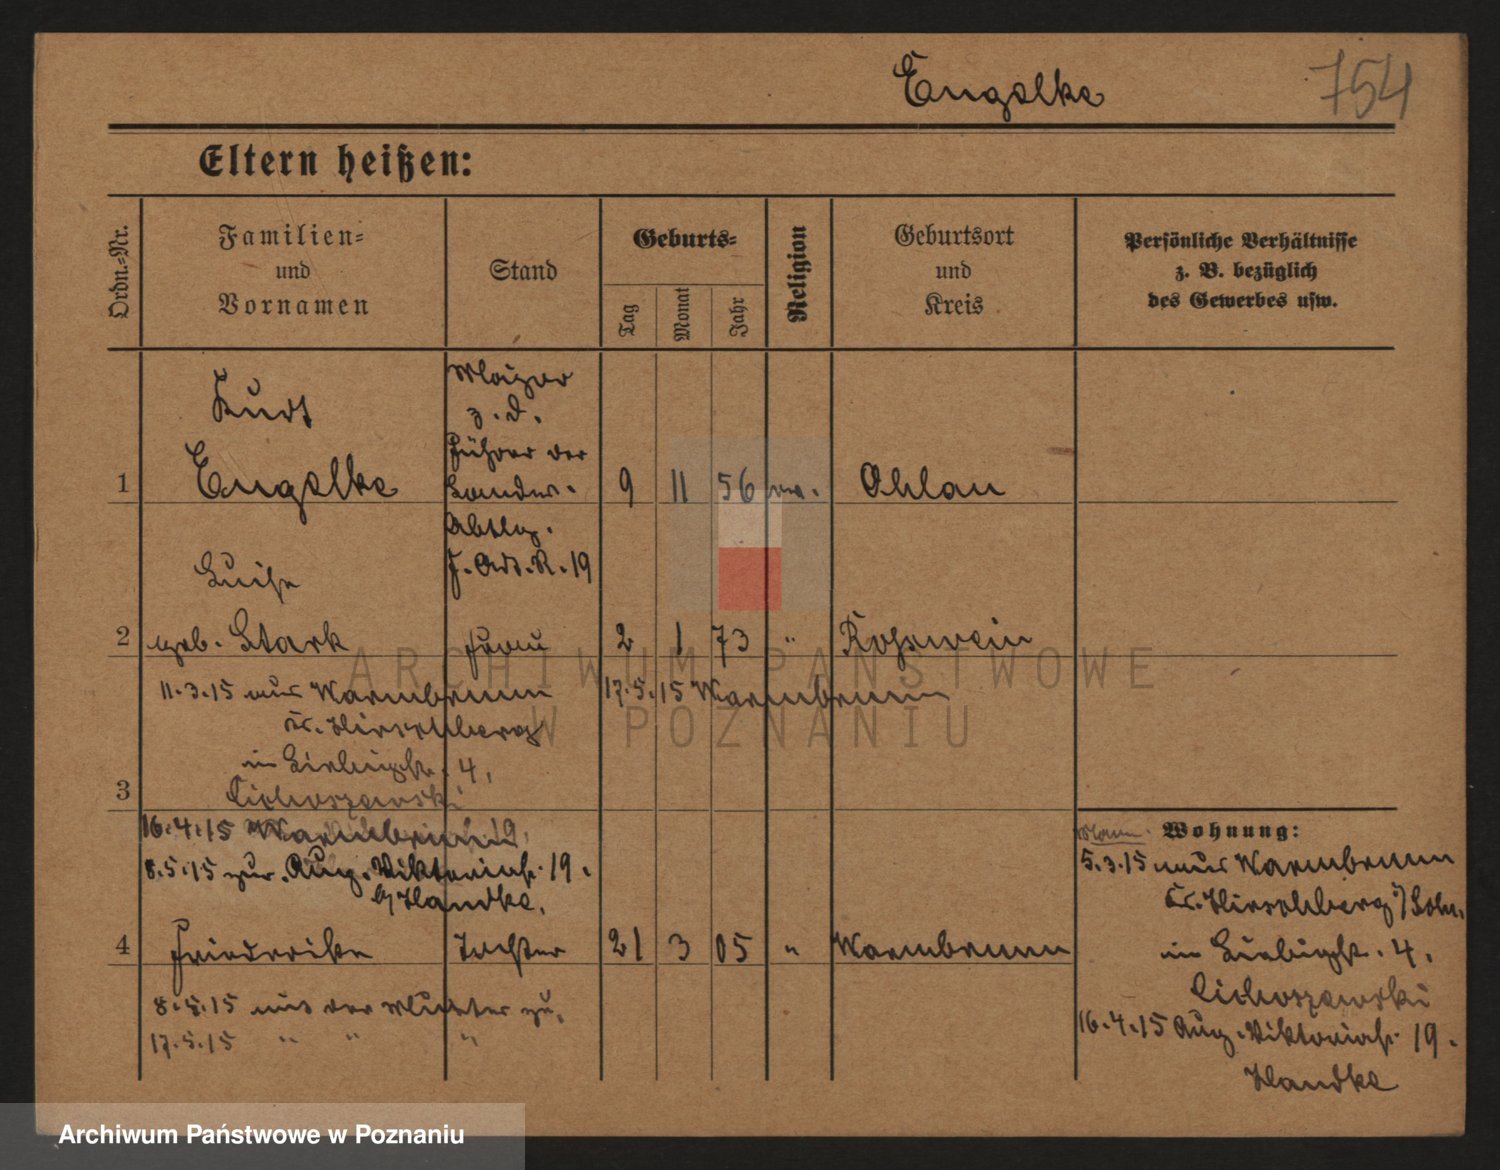 Engelke
754
Eltern heißen:
Ordn.-Nr.
Familien-
und
Vornamen
Stand
Geburts-
Tag
Monat
Jahr
Religion
Geburtsort
und
Kreis
Persönliche Verhältnisse
z. B. bezüglich
des Gewerbes usw.
Kurt
Major
z. D.
Führer der
1 Engelke Landw. 9 11 56 ev. Ohlau
Abtlg.
F. Art. R. 19
Luise
2 geb. Stark Frau 2 1 73 " Roßwein
11.3.15 aus Warmbrunn
17.5.15 Warmbrunn
Kr. Hirschberg
in Liebigstr. 4,
3 Cichoszewski
16.4.15 Warmbrunn
8.5.15 zur. Aug. Viktoriast. 19.
b/ Handke.
4 Friederike Tochter 21 3 05 " Warmbrunn
8.5.15 mit der Mutter zu.
17.5.15 " " "
Mann. Wohnung:
5.3.15 aus Warmbrunn
Kr. Hirschberg
in Liebigstr. 4,
Cichoszewski
16.4.15 Aug. Viktoriast. 19.
Handke
ARCHIWUM PAŃSTWOWE
W POZNANIU
Archiwum Państwowe w Poznaniu